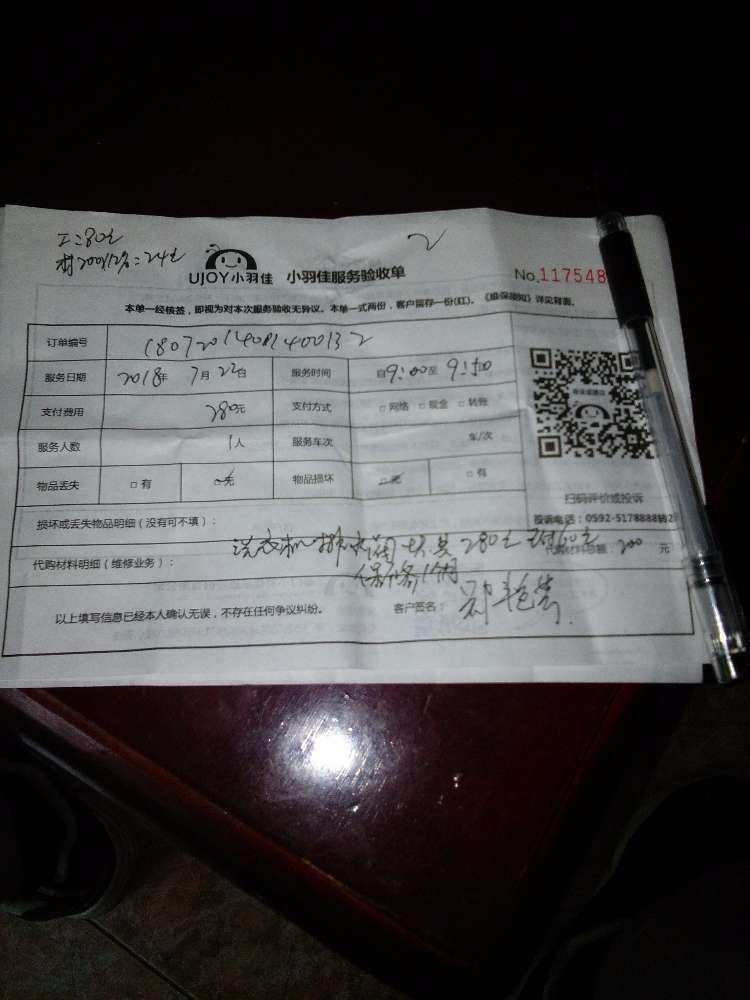 工:80元
2
UJOY小羽佳 小羽佳服务验收单
No.117548
本单一经核签，即视为对本次服务验收无异议。本单一式两份，客户留存一份(红)。《维保须知》详见背面。
订单编号
服务日期 2018年 7月 22日 服务时间 自9:00至 9:50
支付费用 280元 支付方式 □网络 □现金 □转账
服务人数 1人 服务车次 车/次
物品丢失 □有 □无 物品损坏 □无 □有
扫码评价或投诉
损坏或丢失物品明细（没有可不填）：
投诉电话：0592-5178888转2
代购材料明细（维修业务）： 洗衣机排水阀 280元
代购材料总额：200 元
保修1个月
以上填写信息已经本人确认无误，不存在任何争议纠纷。 客户签名：